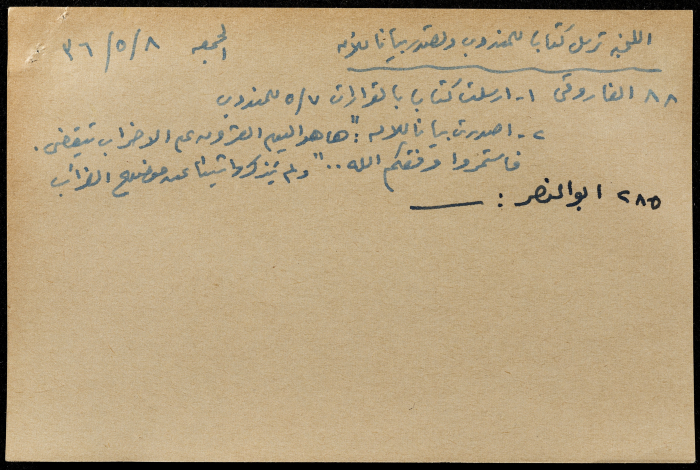 اللجنة ترسل كتابا للمندوب وتصدر بيانا للأمة
الجمعة ٣٦/٥/٨
٨٨ الفاروقي ١- ارسلت كتابا بالقرارات ٥/٧ للمندوب
٢- اصدرت بيانا للامة: "ها هو اليوم العشرون على الاضراب ينقضي.
فاستمروا وفقكم الله .." ولم يذكروا شيئا عن موضوع الضرائب
٢٨٥ ابو النصر :